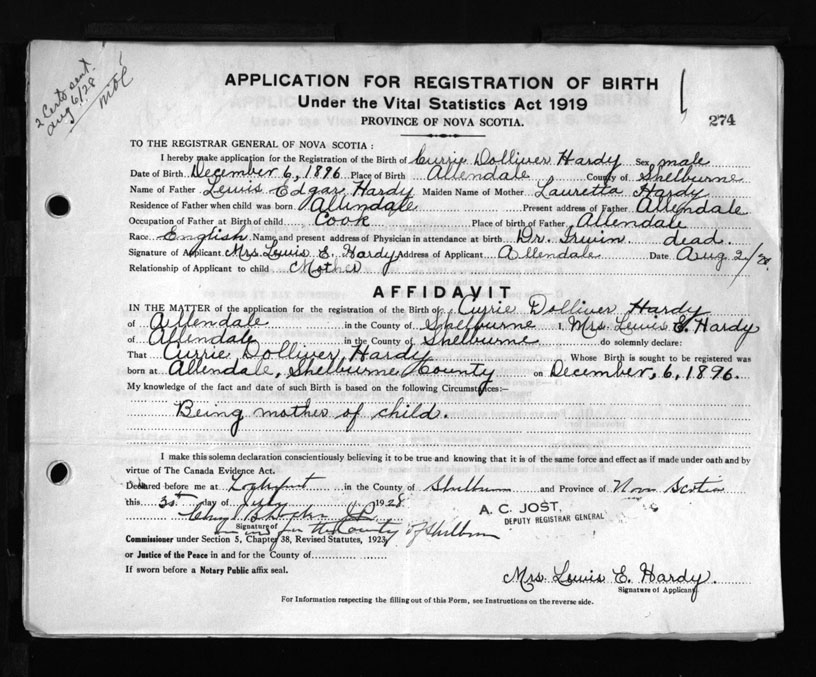 2 Certs sent.
Aug 6/28.
APPLICATION FOR REGISTRATION OF BIRTH
Under the Vital Statistics Act 1919
PROVINCE OF NOVA SCOTIA.
274
TO THE REGISTRAR GENERAL OF NOVA SCOTIA:
I hereby make application for the Registration of the Birth of Currie Dolliver Hardy Sex male
Date of Birth December 6, 1896 Place of Birth Allendale County of Shelburne
Name of Father Lewis Edgar Hardy Maiden Name of Mother Lauretta Hardy
Residence of Father when child was born Allendale Present address of Father Allendale
Occupation of Father at Birth of child Cook Place of birth of Father Allendale
Race English Name and present address of Physician in attendance at birth Dr. Irwin dead.
Signature of Applicant Mrs Lewis E. Hardy Address of Applicant Allendale Date Aug 2/28.
Relationship of Applicant to child Mother
AFFIDAVIT
IN THE MATTER of the application for the registration of the Birth of Currie Dolliver Hardy
of Allendale in the County of Shelburne I, Mrs. Lewis E. Hardy
of Allendale in the County of Shelburne do solemnly declare:
That Currie Dolliver Hardy Whose Birth is sought to be registered was
born at Allendale, Shelburne County on December, 6, 1896.
My knowledge of the fact and date of such Birth is based on the following Circumstances:—
Being mother of child.
I make this solemn declaration conscientiously believing it to be true and knowing that it is of the same force and effect as if made under oath and by
virtue of The Canada Evidence Act.
Declared before me at Lockeport in the County of Shelburne and Province of Nova Scotia
this 31st day of July 1928
A. C. JOST,
DEPUTY REGISTRAR GENERAL
Signature of
in and for the County of Shelburne
Commissioner under Section 5, Chapter 38, Revised Statutes, 1923
or Justice of the Peace in and for the County of
If sworn before a Notary Public affix seal.
Mrs. Lewis E. Hardy.
Signature of Applicant.
For Information respecting the filling out of this Form, see Instructions on the reverse side.